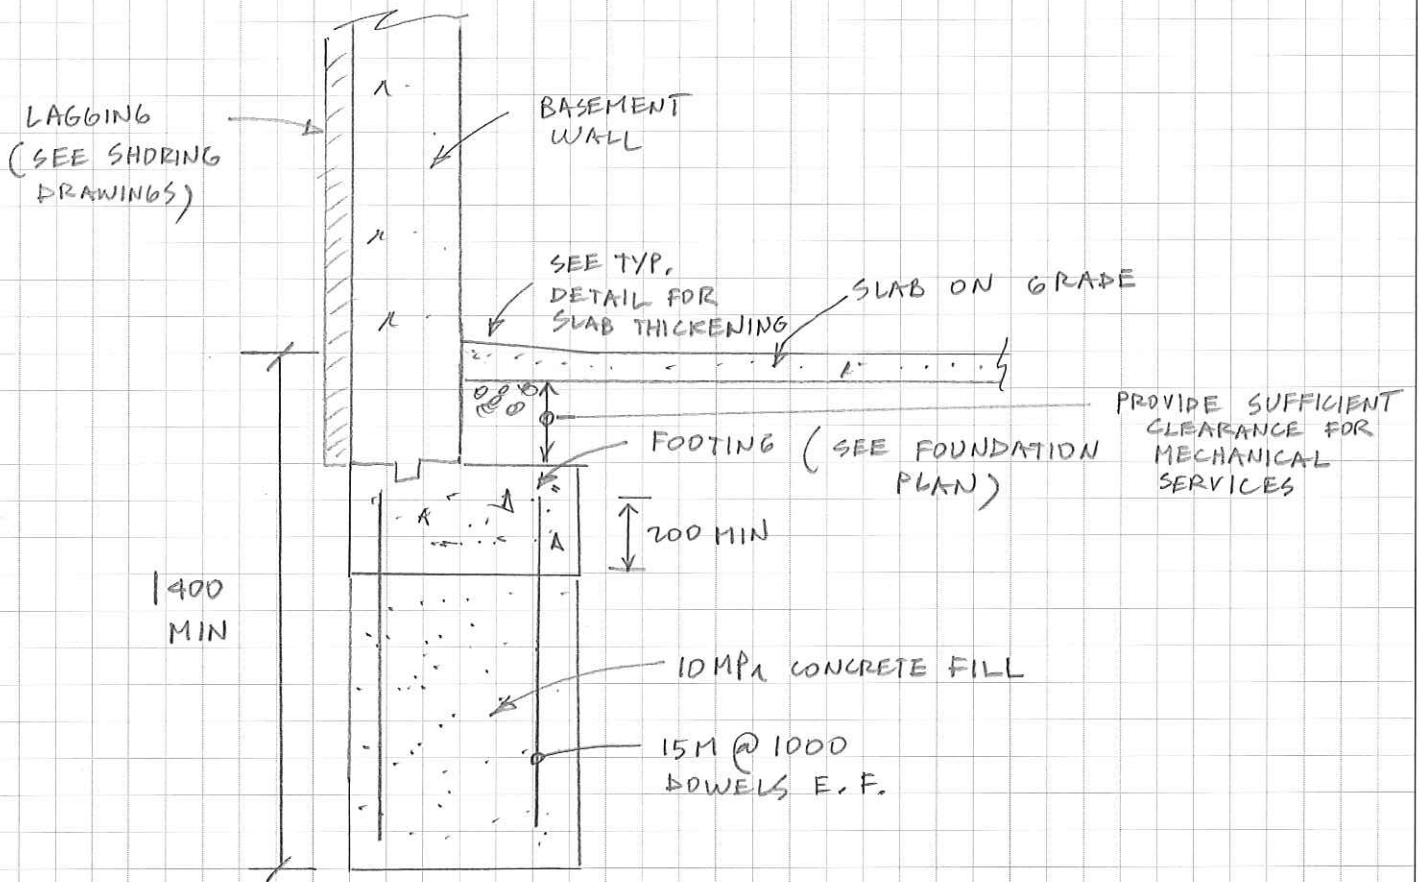 LAGGING
(SEE SHORING
DRAWINGS)
BASEMENT
WALL
SEE TYP.
DETAIL FOR
SLAB THICKENING
SLAB ON GRADE
PROVIDE SUFFICIENT
CLEARANCE FOR
MECHANICAL
SERVICES
FOOTING (SEE FOUNDATION
PLAN)
200 MIN
1400
MIN
10 MPa CONCRETE FILL
15M @ 1000
DOWELS E.F.